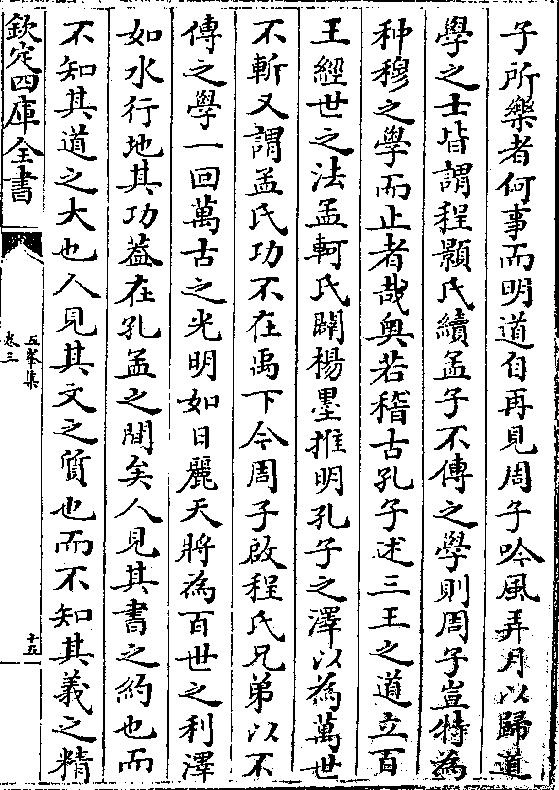 子所樂者何事而明道自再見周子吟風弄月以歸道
學之士皆謂程顥氏續孟子不傳之學則周子豈特為
种穆之學而止者哉奥若稽古孔子述三王之道立百
王經世之法孟軻氏闢楊墨推明孔子之澤以為萬世
不斬又謂孟氏功不在禹下今周子啟程氏兄弟以不
傳之學一回萬古之光明如日麗天將為百世之利澤
如水行地其功葢在孔孟之間矣人見其書之約也而
不知其道之大也人見其文之質也而不知其義之精
欽定四庫全書
五峯集
卷三
十五